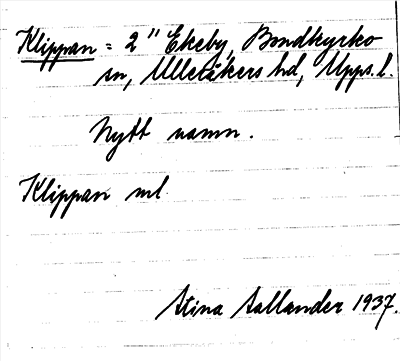 Klippan = 2" Ekeby, Bondkyrko
sn, Ulleråkers hd, Upps. l.
Nytt namn.
Klippan ml
Stina Sallander 1937.